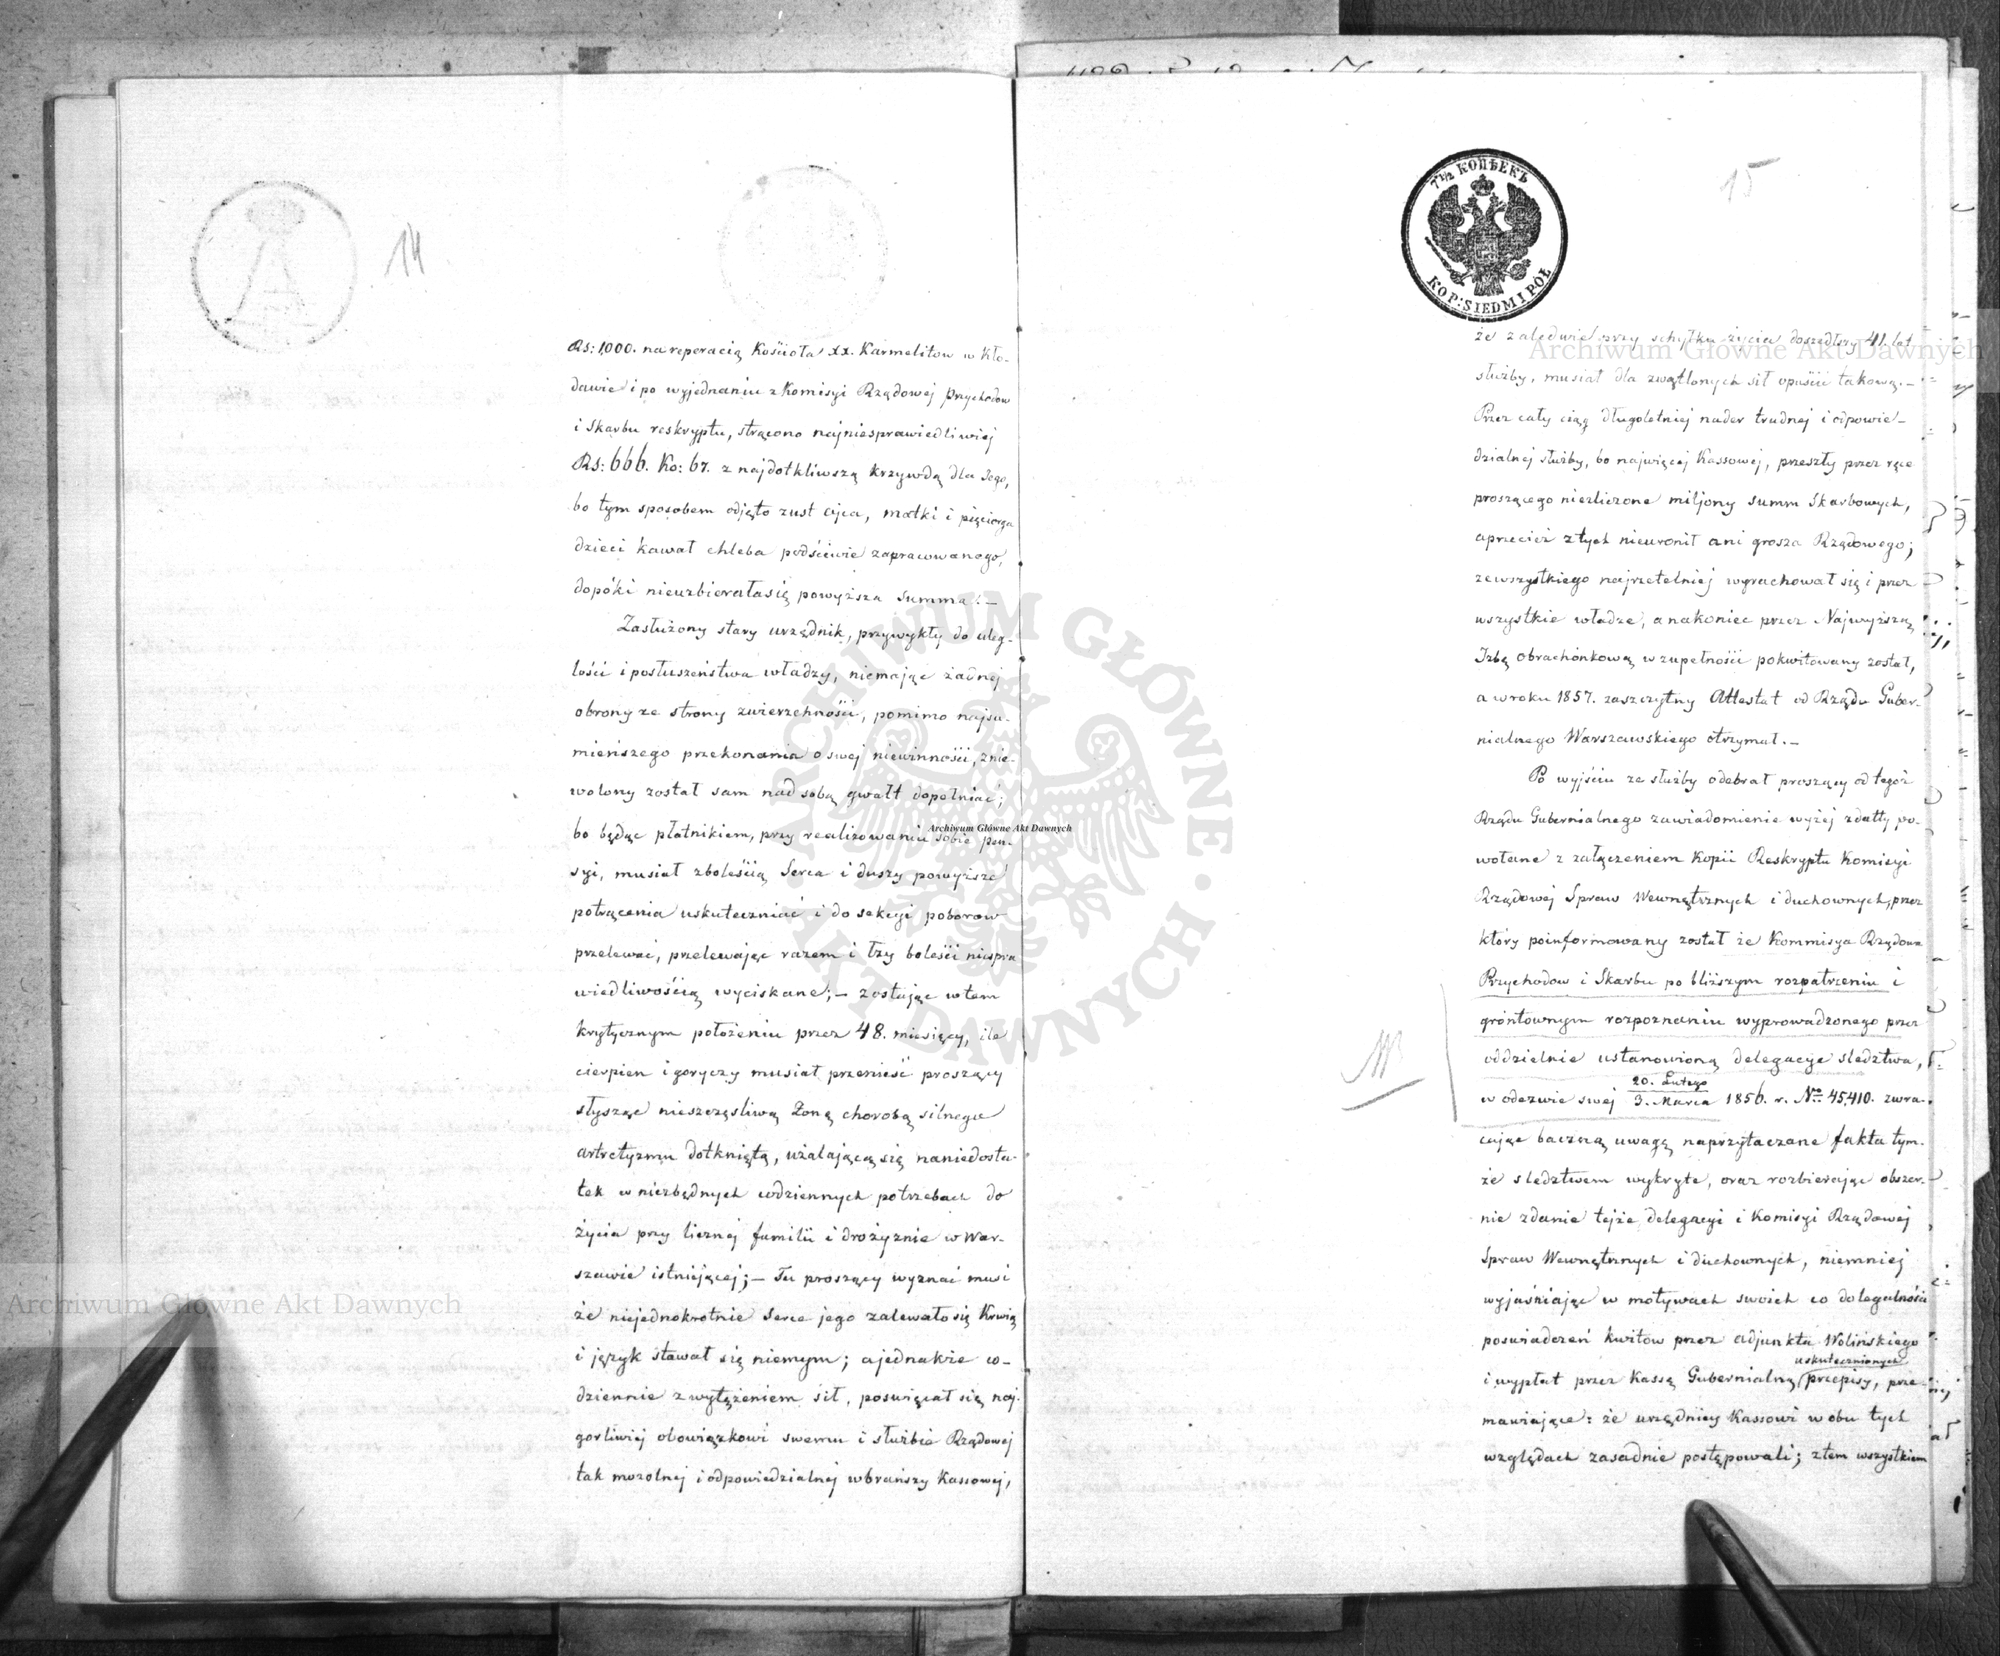 14
Rs: 1,000. na reperacią Kościoła XX. Karmelitow w Kło-
dawie i po wyjednaniu z Komisyi Rządowej Przychodow
i Skarbu reskryptu, strącono najniesprawiedliwiej
Rs: 666. Ko: 67. z najdotkliwszą krzywdą dla Jego,
bo tym sposobem odjęto z ust ojca, matki i pięciorga
dzieci kawał chleba podściwie zapracowanego,
dopóki nieuzbierałasię powyższa summa. —
Zasłużony stary urzędnik, przywykły do uleg-
łości i posłuszeństwa władzy, niemając żadnej
obrony ze strony zwierzchności, pomimo najsu-
mieńszego przekonania o swej niewinności, znie-
wolony został sam nad sobą gwałt dopełniać;
bo będąc płatnikiem, przy realizowaniu sobie pen-
syi, musiał zboleścią Serca i duszy powyższe
potrącenia uskuteczniać i do sekcyi poborow
przelewać, przelewając razem i łzy boleści niespra
wiedliwością wyciskane; — zostając wtem
krytycznym położeniu przez 48. miesięcy, ile
cierpien i goryczy musiał przenieść proszący
słysząc nieszczęsliwą Żonę chorobą silnego
artretyzmu dotkniętą, użalającą się naniedosta-
tek w niezbędnych codziennych potrzebach do
życia przy licznej familii i drożyznie w War-
szawie istniejącej; — Tu proszący wyznać musi
że niejednokrotnie Serce jego zalewało się Krwią
i język stawał się niemym; ajednakże co-
dziennie z wytężeniem sił, poswięcał się naj-
gorliwiej obowiązkowi swemu i służbie Rządowej
tak mozolnej i odpowiedzialnej wbranszy Kassowej,
15
7½ КОПѢЕКЪ
KOP: SIEDM I PÓŁ
że zaledwie przy schyłku życia doszedłszy 41. lat
służby, musiał dla zwątlonych sił opuścić takową. —
Przez cały ciąg długoletniej nader trudnej i odpowie-
dzialnej służby, bo najwięcej Kassowej, przeszły przez ręce
proszącego niezliczone miljony summ Skarbowych,
aprzecież ztych nieuronił ani grosza Rządowego;
zewszystkiego najrzetelniej wyrachował się i przez
wszystkie władze, anakoniec przez Najwyższą
Izbę obrachónkową w zupełności pokwitowany został,
a w roku 1857. zaszczytny Attestat od Rządu Guber-
nialnego Warszawskiego otrzymał. —
Po wyjściu ze służby odebrał proszący od tegoż
Rządu Gubernialnego zawiadomienie wyżej zdatty po-
wołane z załączeniem Kopii Reskryptu Komisyi
Rządowej Spraw Wewnętrznych i duchownych, przez
który poinformowany został że Kommisya Rządowa
Przychodow i Skarbu po bliższym rozpatrzeniu i
gróntownym rozpoznaniu wyprowadzonego przez
oddzielnie ustanowioną delegacyje sledztwa,
20. Lutego
w odezwie swej 3. Marca 1856. r. Nro 45,410. zwra-
cając baczną uwagę naprzytaczane fakta tym-
że sledztwem wykryte, oraz rozbierając obszer-
nie zdanie tejże delegacyi i Komisyi Rządowej
Spraw Wewnętrznych i duchownych, niemniej
wyjaśniając w motywach swoich co do legalności
poswiadczeń kwitow przez adjunkta Wolińskiego
uskutecznionych
i wypłat przez Kassę Gubernialną przepisy, prze-
mawiające: że urzędnicy Kassowi w obu tych
względach zasadnie postępowali; ztem wszystkiem
Archiwum Główne Akt Dawnych
Archiwum Główne Akt Dawnych
Archiwum Główne Akt Dawnych
ARCHIWUM GŁÓWNE AKT DAWNYCH